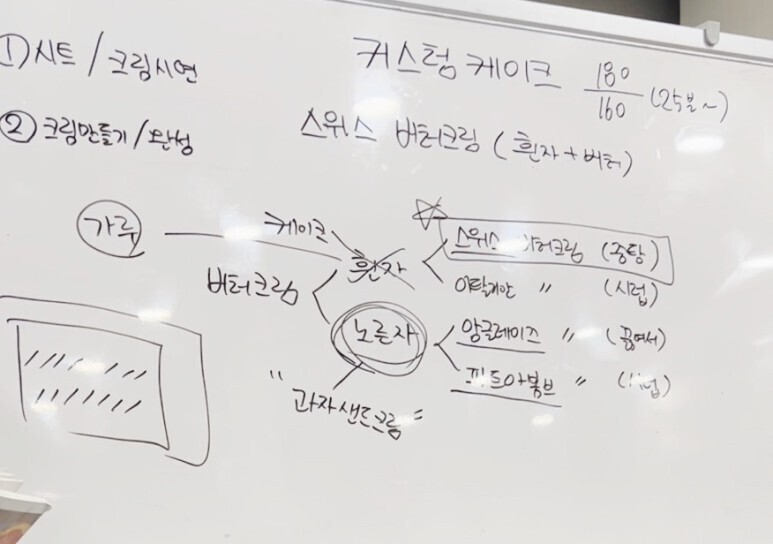 ① 시트 / 크림시연
커스텀 케이크 180/160 (25분~)
② 크림만들기 / 완성
스위스 버터크림 (흰자 + 버터)
가루
케이크
흰자
스위스 버터크림 (중탕)
버터크림
이탈리안 〃 (시럽)
노른자
앙글레이즈 〃 (끓여서)
파트아봄브 〃 (시럽)
"과자샌드크림"